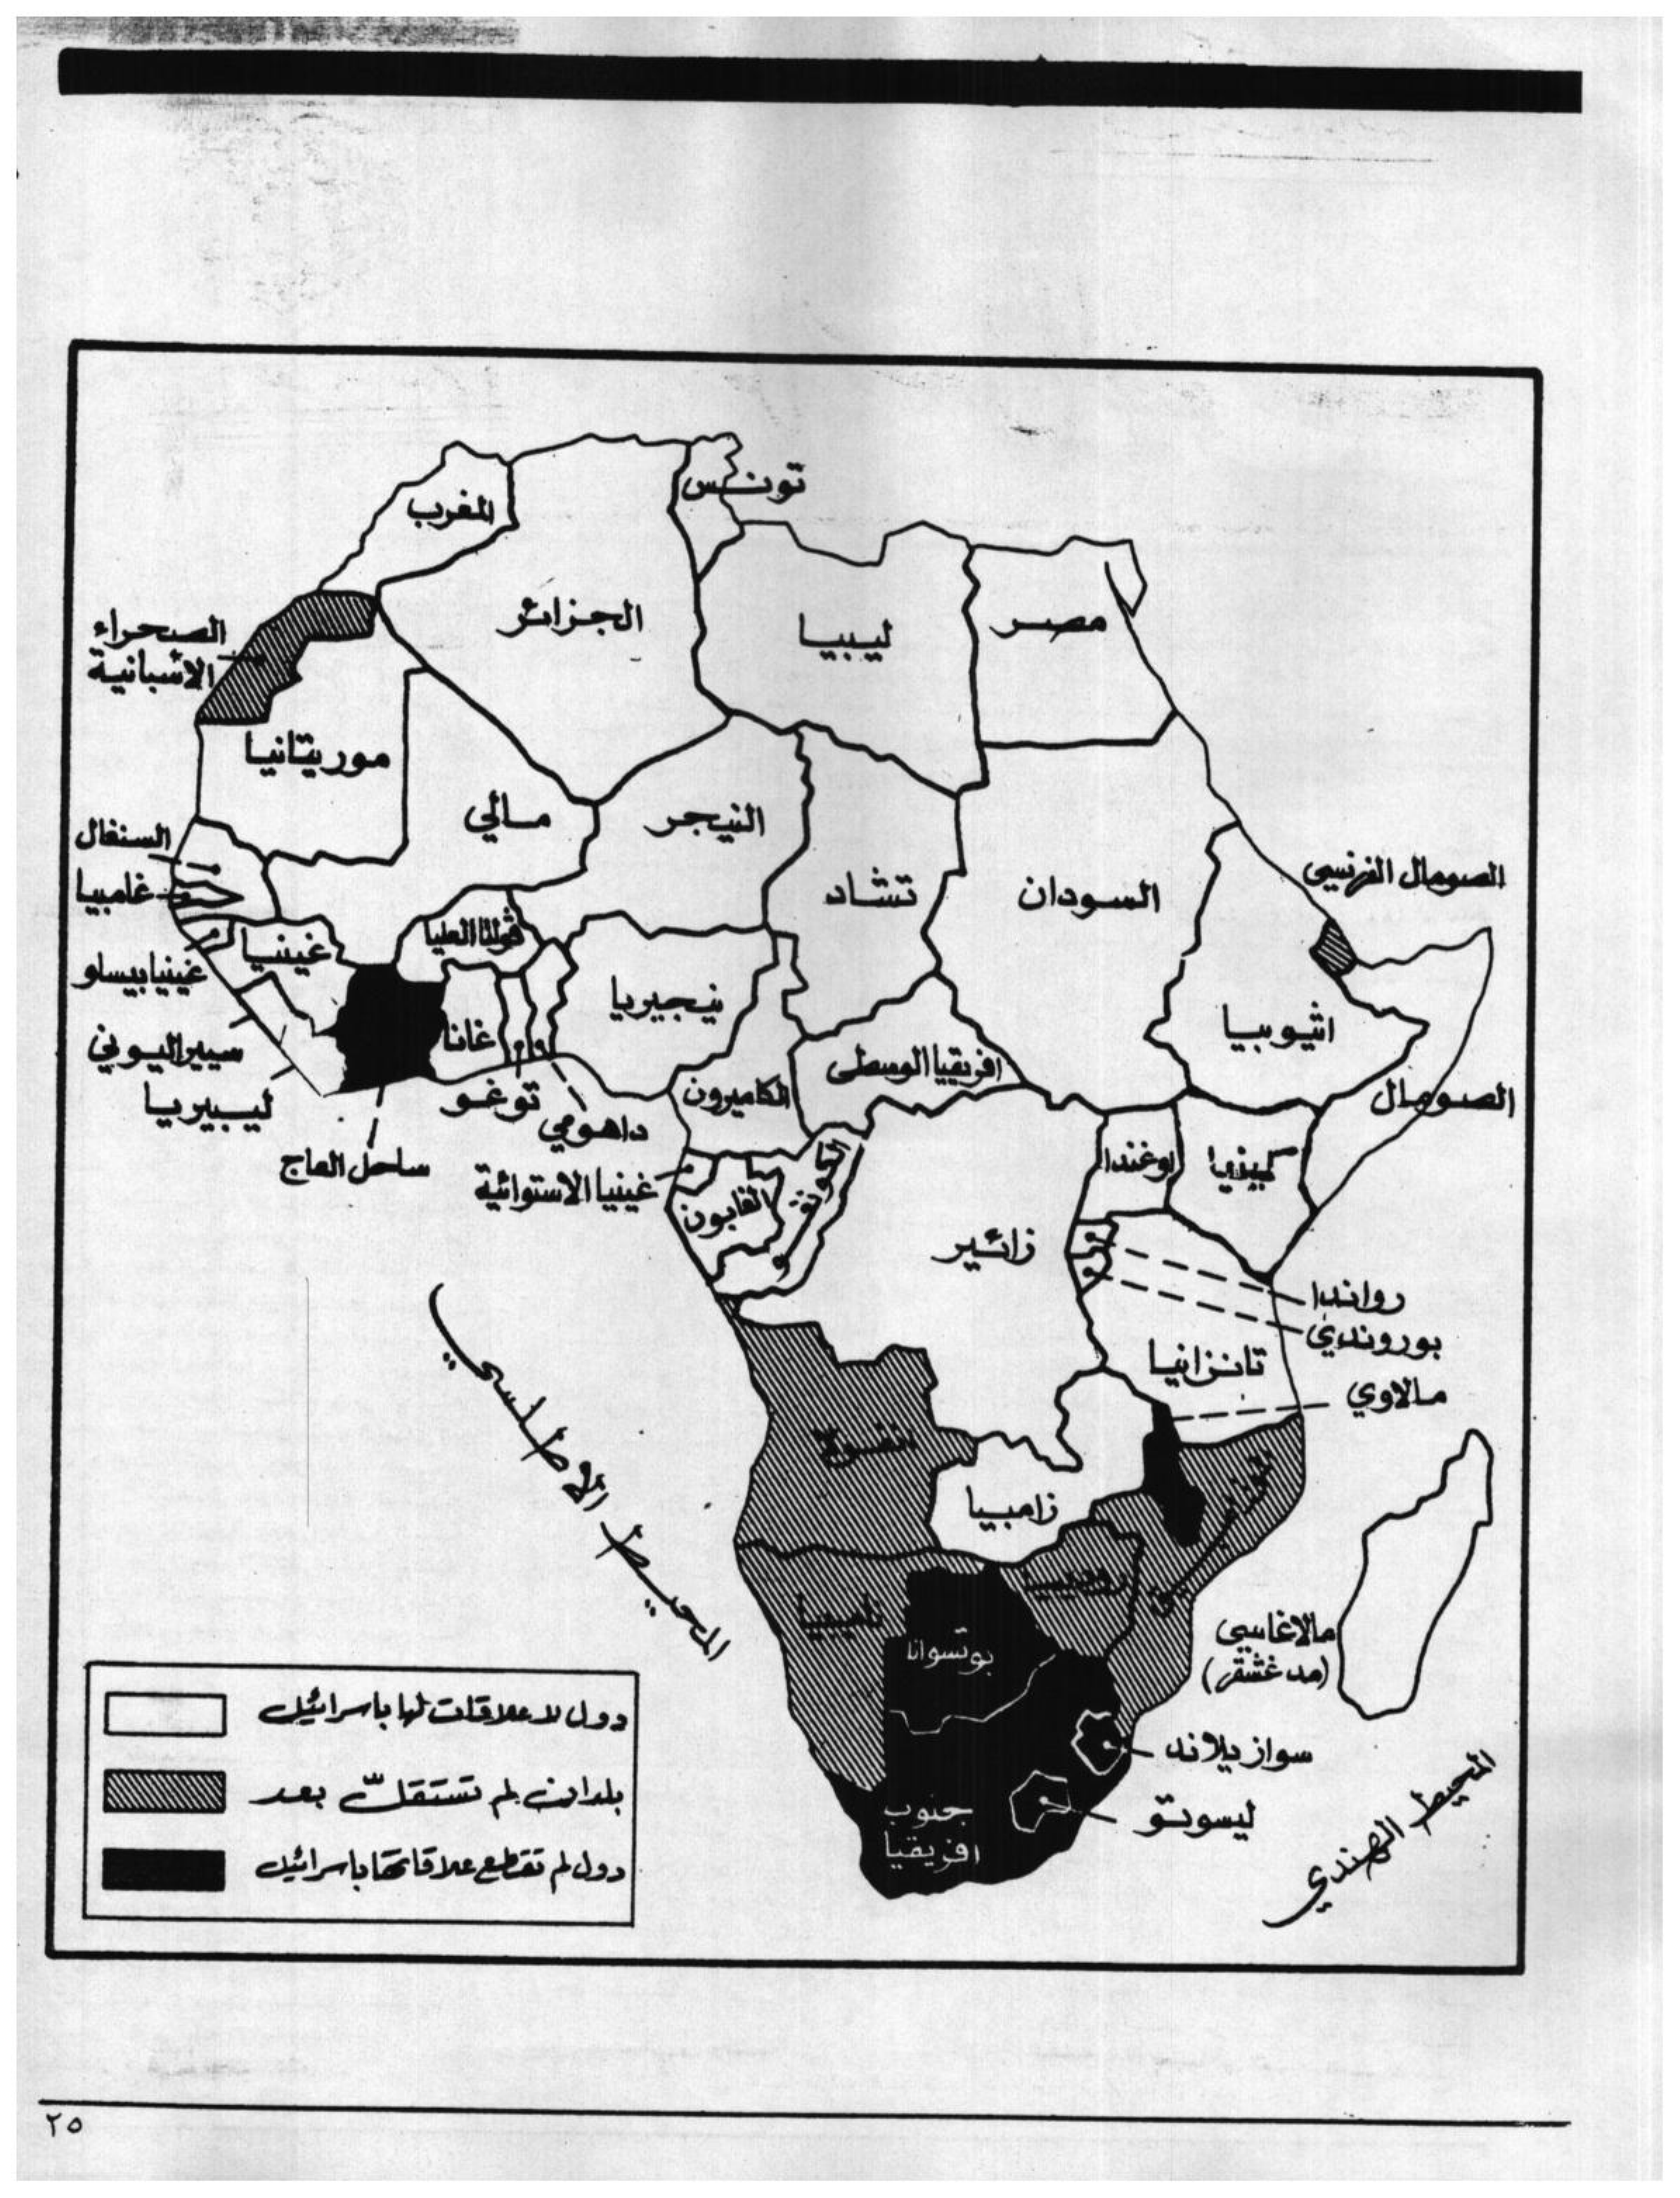 تونس
المغرب
الجزائر
ليبيا
مصر
الصحراء
الاسبانية
موريتانيا
مالي
النيجر
تشاد
السودان
الصومال الفرنسي
السنغال
غامبيا
ڤولتا العليا
غينيا
غينيا بيساو
نيجيريا
غانا
اثيوبيا
سييراليوني
افريقيا الوسطى
الكاميرون
توغو
ليبيريا
داهومي
الصومال
ساحل العاج
غينيا الاستوائية
الغابون
الكونغو
اوغندا
كينيا
زائير
رواندا
بوروندي
تانزانيا
مالاوي
انغولا
زامبيا
المحيط الاطلسي
روديسيا
ناميبيا
بوتسوانا
مالاغاسي
(مدغشقر)
سوازيلاند
ليسوتو
جنوب
افريقيا
المحيط الهندي
دول لا علاقات لها باسرائيل
بلدان لم تستقلّ بعد
دول لم تقطع علاقاتها باسرائيل
٢٥